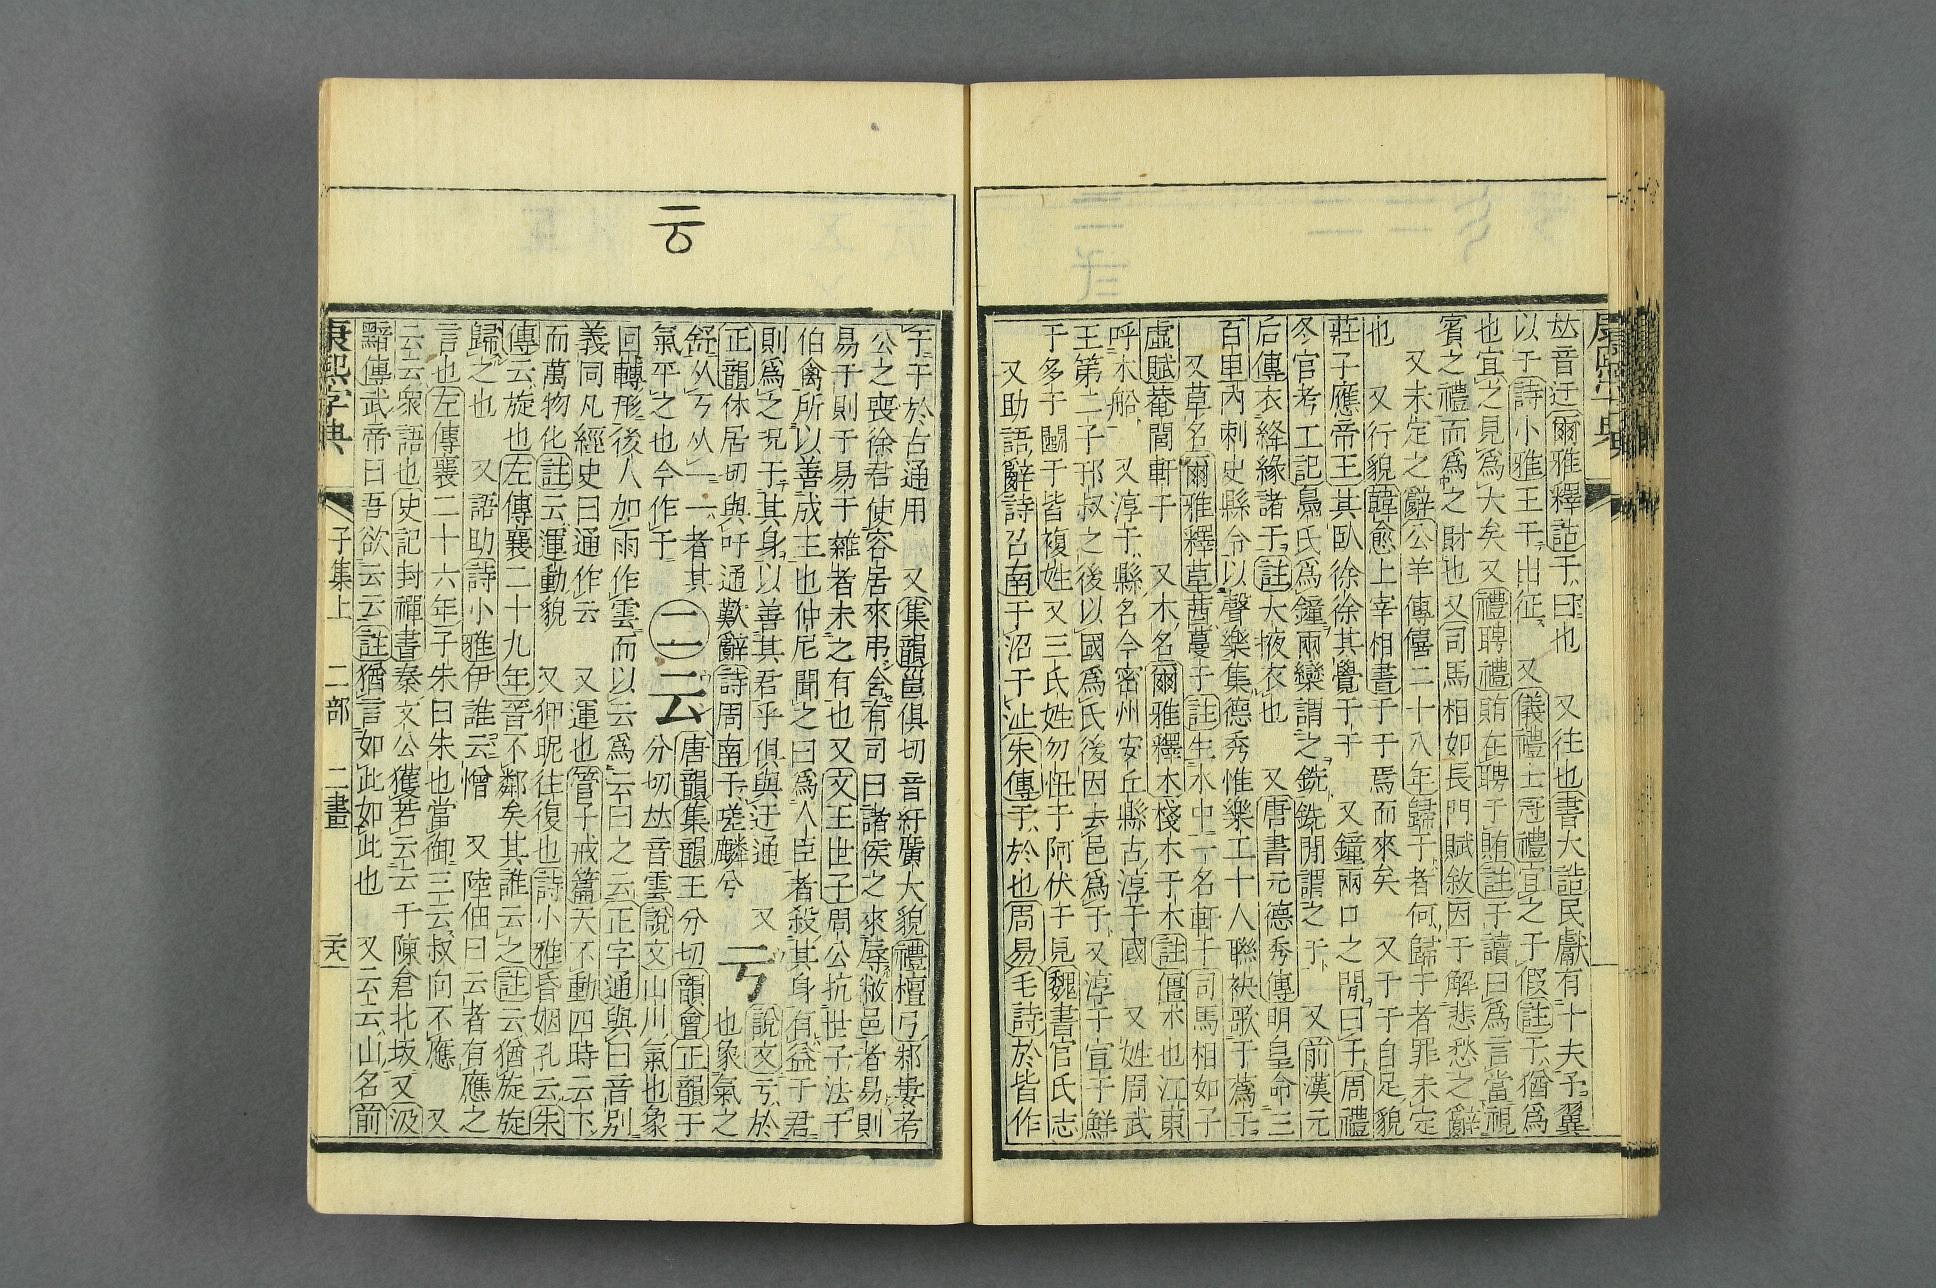 康熙字典
𠀤音迂爾雅釋詁于曰也　又往也書大誥民獻有十夫予翼
以于詩小雅王于出征　又儀禮士冠禮宜之于假註于猶爲
也宜之見爲大矣又禮聘禮賄在聘于賄註于讀曰爲言當視
賓之禮而爲之財也又司馬相如長門賦敘因于解悲愁之辭
又未定之辭公羊傳僖二十八年歸于者何歸于者罪未定
也　又行貌韓愈上宰相書于于焉而來矣　又于于自足貌
莊子應帝王其臥徐徐其覺于于　又鐘兩口之閒曰于周禮
冬官考工記鳧氏爲鐘兩欒謂之銑銑閒謂之于　又前漢元
后傳衣絳緣諸于註大掖衣也　又唐書元德秀傳明皇命三
百里內刺史縣令以聲樂集德秀惟樂工十人聯袂歌于蔿于
又草名爾雅釋草茜蔓于註生水中一名軒于司馬相如子
虛賦菴閭軒于　又木名爾雅釋木棧木于木註僵木也江東
呼木船　又淳于縣名今密州安丘縣古淳于國　又姓周武
王第二子邘叔之後以國爲氏後因去邑爲于又淳于宣于鮮
于多于闞于皆複姓又三氏姓勿忸于阿伏于見魏書官氏志
又助語辭詩召南于沼于沚朱傳于於也周易毛詩於皆作
于于於古通用　又集韻邕俱切音紆廣大貌禮檀弓邾婁考
公之喪徐君使容居來弔含有司曰諸侯之來辱敝邑者易則
易于則于易于雜者未之有也又文王世子周公抗世子法于
伯禽所以善成王也仲尼聞之曰爲人臣者殺其身有益于君
則爲之況于其身以善其君乎俱與迂通　又
正韻休居切與吁通歎辭詩周南于嗟麟兮
亏
說文亏於
也象氣之
舒从丂从一一者其
氣平之也今作于
二
云
唐韻集韻王分切韻會正韻于
分切𠀤音雲說文山川氣也象
回轉形後人加雨作雲而以云爲云曰之云正字通與曰音別
義同凡經史曰通作云　又運也管子戒篇天不動四時云下
而萬物化註云運動貌　又狎昵往復也詩小雅昏姻孔云朱
傳云旋也左傳襄二十九年晉不鄰矣其誰云之註云猶旋旋
歸之也　又語助詩小雅伊誰云憎　又陸佃曰云者有應之
言也左傳襄二十六年子朱曰朱也當御三云叔向不應　又
云云衆語也史記封禪書秦文公獲若云云于陳倉北坂又汲
黯傳武帝曰吾欲云云註猶言如此如此也　又云云山名前
康熙字典　子集上　二部　二畫